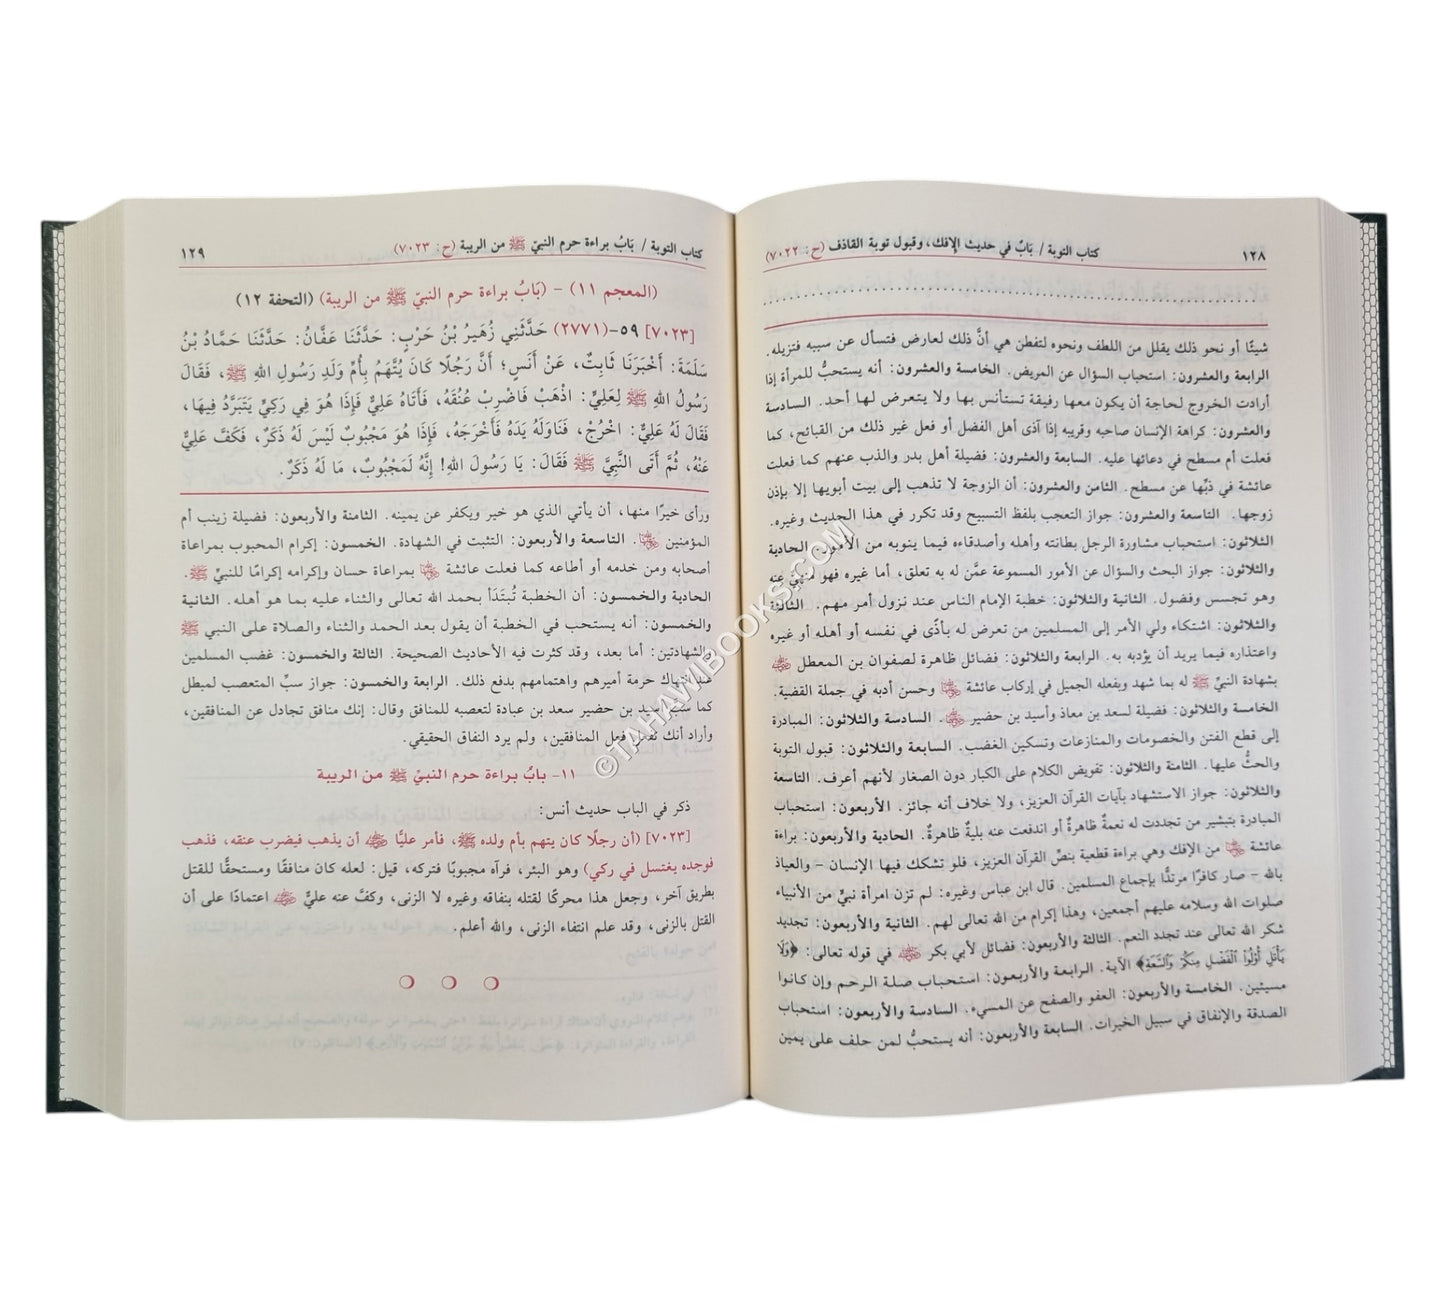 ١٢٨ كتاب التوبة / بَابٌ في حديث الإفك، وقبول توبة القاذف (ح: ٧٠٢٢)
شيئًا أو نحو ذلك يقلل من اللطف ونحوه لتفطن هي أنَّ ذلك لعارض فتسأل عن سببه فتزيله.
الرابعة والعشرون: استحباب السؤال عن المريض. الخامسة والعشرون: أنه يستحبُّ للمرأة إذا
أرادت الخروج لحاجة أن يكون معها رفيقة تستأنس بها ولا يتعرض لها أحد. السادسة
والعشرون: كراهة الإنسان صاحبه وقريبه إذا آذى أهل الفضل أو فعل غير ذلك من القبائح، كما
فعلت أم مسطح في دعائها عليه. السابعة والعشرون: فضيلة أهل بدر والذب عنهم كما فعلت
عائشة في ذبِّها عن مسطح. الثامن والعشرون: أن الزوجة لا تذهب إلى بيت أبويها إلا بإذن
زوجها. التاسعة والعشرون: جواز التعجب بلفظ التسبيح وقد تكرر في هذا الحديث وغيره.
الثلاثون: استحباب مشاورة الرجل بطانته وأهله وأصدقاءه فيما ينوبه من الأمور. الحادية
والثلاثون: جواز البحث والسؤال عن الأمور المسموعة عمَّن له به تعلق، أما غيره فهو منهيٌّ عنه
وهو تجسس وفضول. الثانية والثلاثون: خطبة الإمام الناس عند نزول أمر مهم. الثالثة
والثلاثون: اشتكاء ولي الأمر إلى المسلمين من تعرض له بأذًى في نفسه أو أهله أو غيره
واعتذاره فيما يريد أن يؤدبه به. الرابعة والثلاثون: فضائل ظاهرة لصفوان بن المعطل ﵁
بشهادة النبيّ ﷺ له بما شهد وبفعله الجميل في إركاب عائشة ﵂ وحسن أدبه في جملة القضية.
الخامسة والثلاثون: فضيلة لسعد بن معاذ وأسيد بن حضير ﵄. السادسة والثلاثون: المبادرة
إلى قطع الفتن والخصومات والمنازعات وتسكين الغضب. السابعة والثلاثون: قبول التوبة
والحثُّ عليها. الثامنة والثلاثون: تفويض الكلام على الكبار دون الصغار لأنهم أعرف. التاسعة
والثلاثون: جواز الاستشهاد بآيات القرآن العزيز، ولا خلاف أنه جائز. الأربعون: استحباب
المبادرة بتبشير من تجددت له نعمةٌ ظاهرةٌ أو اندفعت عنه بليةٌ ظاهرةٌ. الحادية والأربعون: براءة
عائشة ﵂ من الإفك وهي براءة قطعية بنصِّ القرآن العزيز، فلو تشكك فيها الإنسان – والعياذ
بالله – صار كافرًا مرتدًّا بإجماع المسلمين. قال ابن عباس وغيره: لم تزن امرأة نبيٍّ من الأنبياء
صلوات الله وسلامه عليهم أجمعين، وهذا إكرام من الله تعالى لهم. الثانية والأربعون: تجديد
شكر الله تعالى عند تجدد النعم. الثالثة والأربعون: فضائل لأبي بكر ﵁ في قوله تعالى: ﴿وَلَا
يَأْتَلِ أُوْلُواْ ٱلْفَضْلِ مِنكُمْ وَٱلسَّعَةِ﴾ الآية. الرابعة والأربعون: استحباب صلة الرحم وإن كانوا
مسيئين. الخامسة والأربعون: العفو والصفح عن المسيء. السادسة والأربعون: استحباب
الصدقة والإنفاق في سبيل الخيرات. السابعة والأربعون: أنه يستحبُّ لمن حلف على يمين
كتاب التوبة / بَابُ براءة حرم النبيّ ﷺ من الريبة (ح: ٧٠٢٣) ١٢٩
(المعجم ١١) – (بَابُ براءة حرم النبيّ ﷺ من الريبة) (التحفة ١٢)
[٧٠٢٣] ٥٩-(٢٧٧١) حَدَّثَنِي زُهَيْرُ بْنُ حَرْبٍ: حَدَّثَنَا عَفَّانُ: حَدَّثَنَا حَمَّادُ بْنُ
سَلَمَةَ: أَخْبَرَنَا ثَابِتٌ، عَنْ أَنَسٍ؛ أَنَّ رَجُلًا كَانَ يُتَّهَمُ بِأُمِّ وَلَدِ رَسُولِ اللهِ ﷺ، فَقَالَ
رَسُولُ اللهِ ﷺ لِعَلِيٍّ: اذْهَبْ فَاضْرِبْ عُنُقَهُ، فَأَتَاهُ عَلِيٌّ فَإِذَا هُوَ فِي رَكِيٍّ يَتَبَرَّدُ فِيهَا،
فَقَالَ لَهُ عَلِيٌّ: اخْرُجْ، فَنَاوَلَهُ يَدَهُ فَأَخْرَجَهُ، فَإِذَا هُوَ مَجْبُوبٌ لَيْسَ لَهُ ذَكَرٌ، فَكَفَّ عَلِيٌّ
عَنْهُ، ثُمَّ أَتَى النَّبِيَّ ﷺ فَقَالَ: يَا رَسُولَ اللهِ! إِنَّهُ لَمَجْبُوبٌ، مَا لَهُ ذَكَرٌ.
ورأى خيرًا منها، أن يأتي الذي هو خير ويكفر عن يمينه. الثامنة والأربعون: فضيلة زينب أم
المؤمنين ﵂. التاسعة والأربعون: التثبت في الشهادة. الخمسون: إكرام المحبوب بمراعاة
أصحابه ومن خدمه أو أطاعه كما فعلت عائشة ﵂ بمراعاة حسان وإكرامه إكرامًا للنبيّ ﷺ.
الحادية والخمسون: أن الخطبة تُبتَدَأ بحمد الله تعالى والثناء عليه بما هو أهله. الثانية
والخمسون: أنه يستحب في الخطبة أن يقول بعد الحمد والثناء والصلاة على النبي ﷺ
والشهادتين: أما بعد، وقد كثرت فيه الأحاديث الصحيحة. الثالثة والخمسون: غضب المسلمين
عند انتهاك حرمة أميرهم واهتمامهم بدفع ذلك. الرابعة والخمسون: جواز سبِّ المتعصب لمبطل
كما سب أسيد بن حضير سعد بن عبادة لتعصبه للمنافق وقال: إنك منافق تجادل عن المنافقين،
وأراد أنك تفعل فعل المنافقين، ولم يرد النفاق الحقيقي.
١١- بابُ براءة حرم النبيّ ﷺ من الريبة
ذكر في الباب حديث أنس:
[٧٠٢٣] (أن رجلًا كان يتهم بأم ولده ﷺ، فأمر عليًّا ﵁ أن يذهب فيضرب عنقه، فذهب
فوجده يغتسل في ركي) وهو البئر، فرآه مجبوبًا فتركه، قيل: لعله كان منافقًا ومستحقًّا للقتل
بطريق آخر، وجعل هذا محركًا لقتله بنفاقه وغيره لا الزنى، وكفَّ عنه عليٌّ ﵁ اعتمادًا على أن
القتل بالزنى، وقد علم انتفاء الزنى، والله أعلم.
© TAHAWIBOOKS.COM